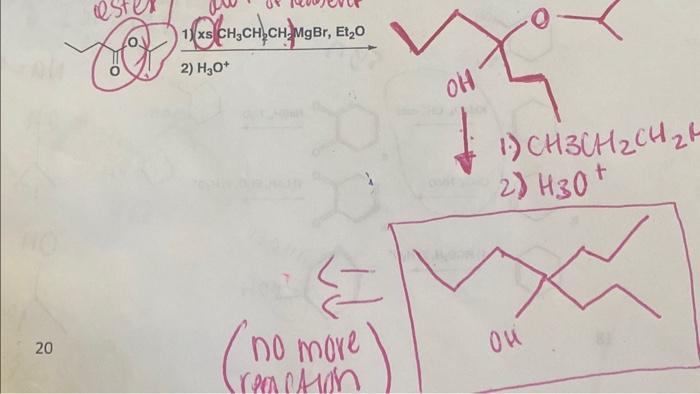 ester
O
O
1) xs CH₃CH₂CH₂MgBr, Et₂O
2) H₃O⁺
O
OH
1.) CH3CH2CH2
2) H3O⁺
OH
(no more
reaction)
20